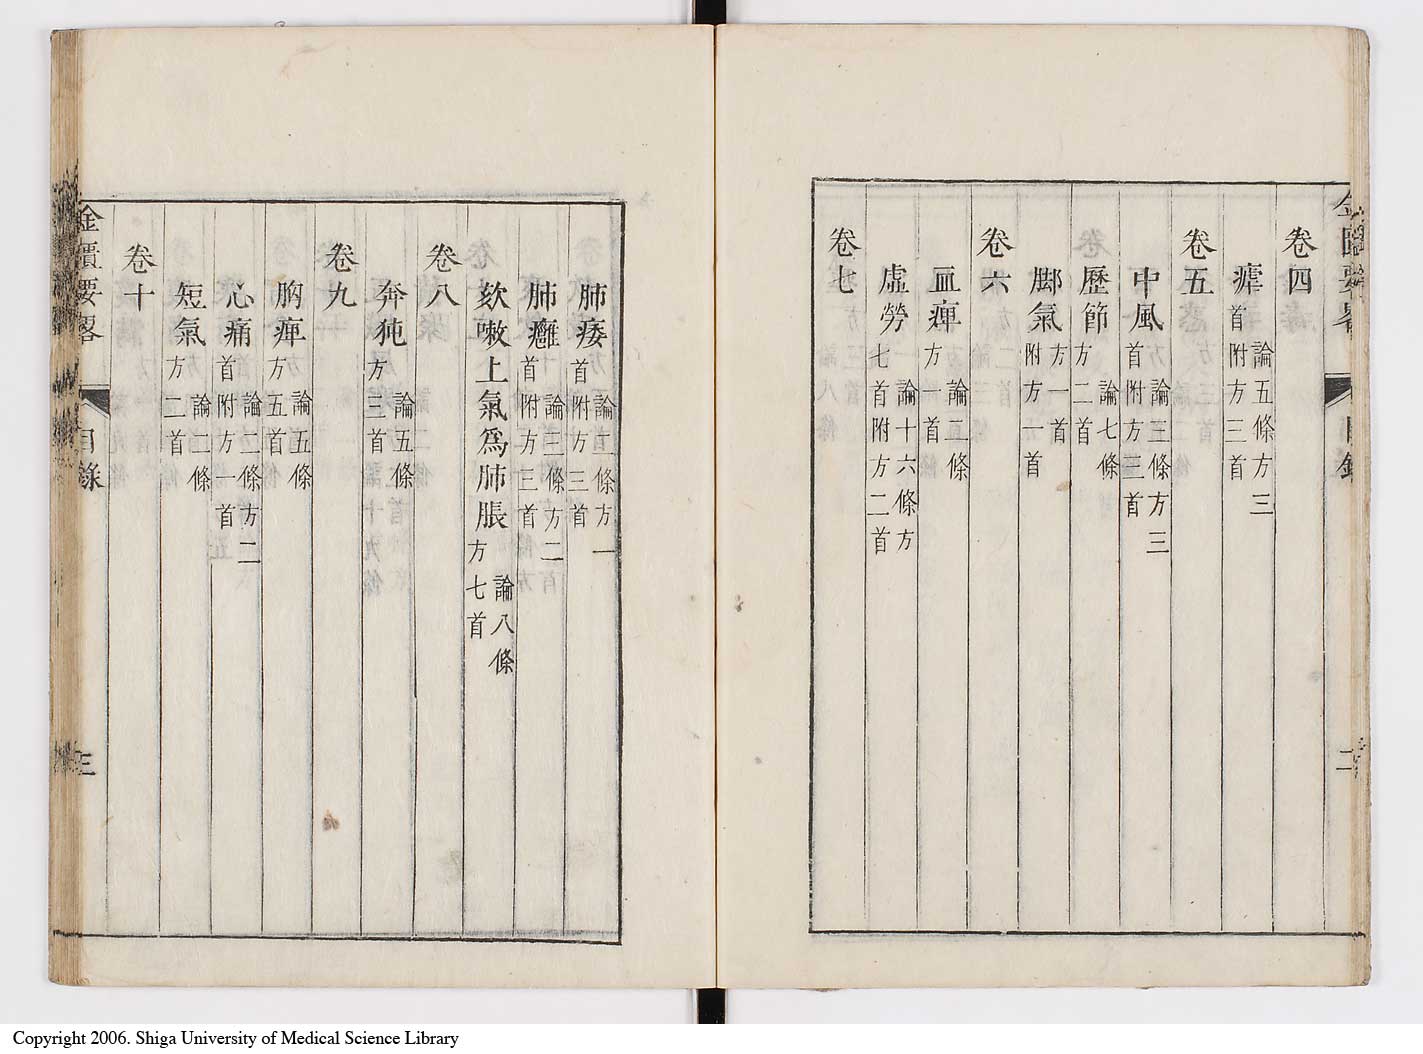 金匱要畧 目錄 二
卷四
瘧 論五條方三首附方三首
卷五
中風 論三條方三首附方三首
歷節 論七條方二首
脚氣 方一首附方一首
卷六
血痺 論二條方一首
虛勞 論十六條方七首附方二首
卷七
肺痿 論二條方一首附方三首
肺癰 論三條方二首附方三首
欬嗽上氣爲肺脹 論八條方七首
卷八
奔㹠 論五條方三首
卷九
胸痺 論五條方五首
心痛 論二條方二首附方一首
短氣 論二條方二首
卷十
金匱要畧 目錄 三
Copyright 2006. Shiga University of Medical Science Library